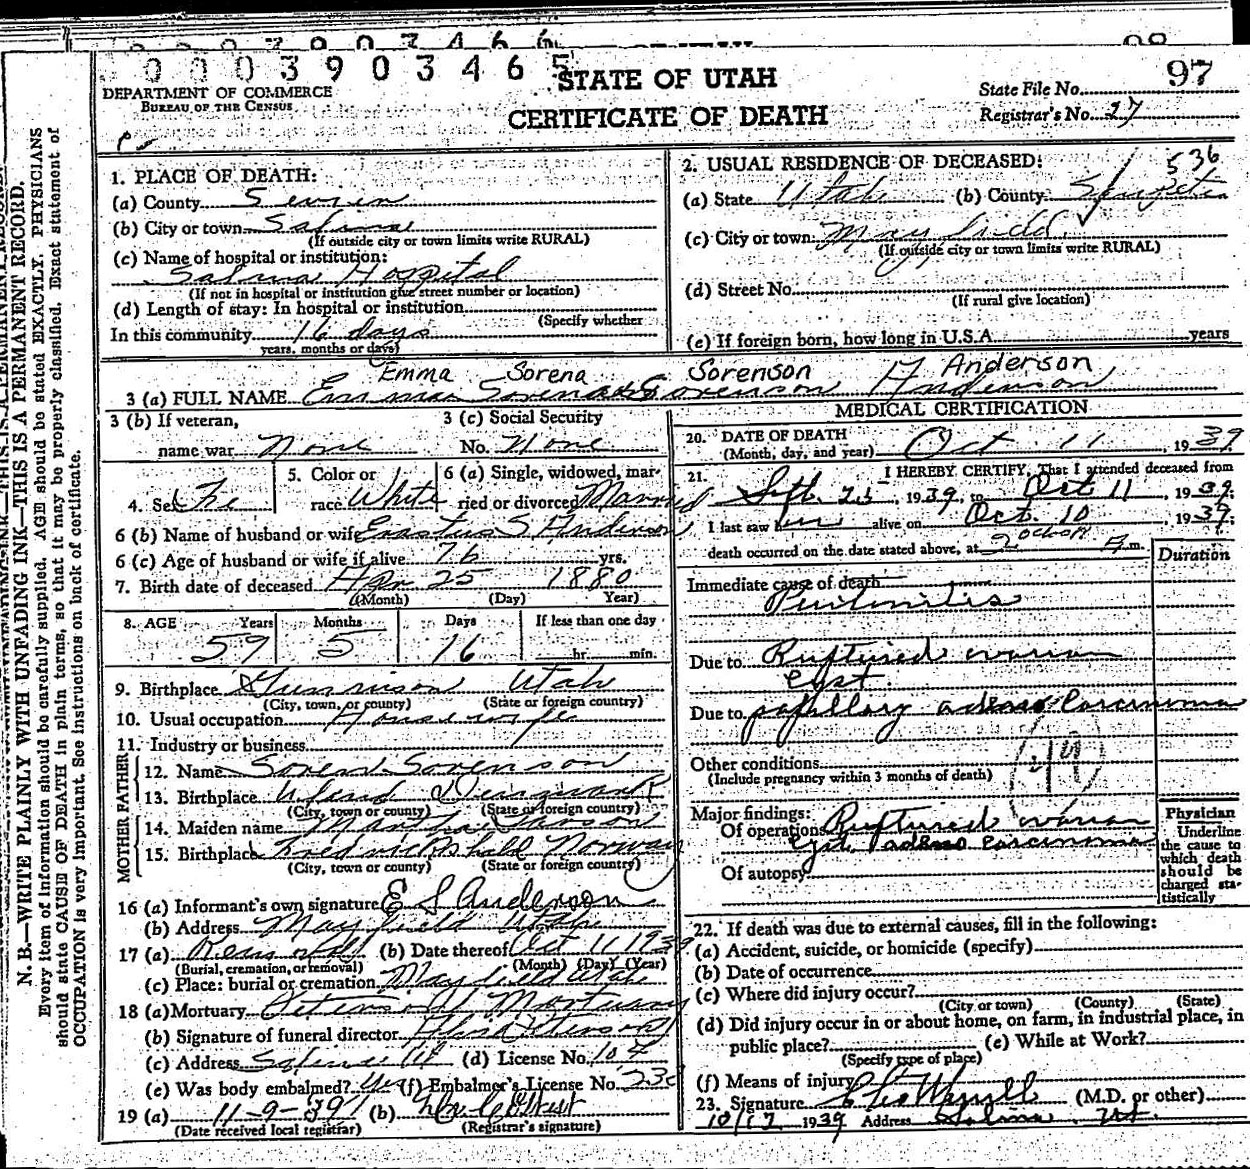 0 0 0 3 9 0 3 4 6 5
STATE OF UTAH
CERTIFICATE OF DEATH
DEPARTMENT OF COMMERCE
BUREAU OF THE CENSUS
State File No. 97
Registrar's No. 27
N. B.—WRITE PLAINLY WITH UNFADING INK—THIS IS A PERMANENT RECORD.
Every item of information should be carefully supplied. AGE should be stated EXACTLY. PHYSICIANS
should state CAUSE OF DEATH in plain terms, so that it may be properly classified. Exact statement of
OCCUPATION is very important. See instructions on back of certificate.
1. PLACE OF DEATH:
(a) County Sevier
(b) City or town Salina
(If outside city or town limits write RURAL)
(c) Name of hospital or institution:
Salina Hospital
(If not in hospital or institution give street number or location)
(d) Length of stay: In hospital or institution
(Specify whether
In this community 16 days
years, months or days)
2. USUAL RESIDENCE OF DECEASED: 536
(a) State Utah (b) County Sanpete
(c) City or town Mayfield
(If outside city or town limits write RURAL)
(d) Street No.
(If rural give location)
(e) If foreign born, how long in U.S.A. years
Emma Sorena Sorenson Anderson
3 (a) FULL NAME Emma Sorena Sorenson Anderson
3 (b) If veteran,
name war None
3 (c) Social Security
No. None
4. Sex Fe
5. Color or
race White
6 (a) Single, widowed, mar-
ried or divorced Married
6 (b) Name of husband or wife Erastus S Anderson
6 (c) Age of husband or wife if alive 76 yrs.
7. Birth date of deceased Apr 25 1880
(Month) (Day) Year)
8. AGE Years Months Days If less than one day
59 5 16 hr. min.
9. Birthplace Gunnison Utah
(City, town, or county) (State or foreign country)
10. Usual occupation Housewife
11. Industry or business
FATHER
12. Name Soren Sorenson
13. Birthplace Denmark
(City, town or county) (State or foreign country)
MOTHER
14. Maiden name Martha
15. Birthplace Fredrickshald Norway
(City, town or county) (State or foreign country)
16 (a) Informant's own signature E S Anderson
(b) Address Mayfield Utah
17 (a) Removal (b) Date thereof Oct 11 1939
(Burial, cremation, or removal) (Month) (Day) (Year)
(c) Place: burial or cremation Mayfield Utah
18 (a) Mortuary Mortuary
(b) Signature of funeral director
(c) Address Salina Ut (d) License No. 104
(e) Was body embalmed? Yes (f) Embalmer's License No.
19 (a) 11-9-39 (b)
(Date received local registrar) (Registrar's signature)
MEDICAL CERTIFICATION
20. DATE OF DEATH
(Month, day, and year) Oct 11, 1939
21. I HEREBY CERTIFY, That I attended deceased from
Sept. 25, 1939, to Oct 11, 1939;
I last saw her alive on Oct. 10, 1939;
death occurred on the date stated above, at 2 oclock m.
Duration
Immediate cause of death
Peritonitis
Due to Ruptured ovarian
Cyst.
Due to papillary adeno Carcinoma
Other conditions
(Include pregnancy within 3 months of death)
49
Major findings:
Of operations Ruptured ovarian
Cyst. adeno Carcinoma
Of autopsy
Physician
Underline
the cause to
which death
should be
charged sta-
tistically
22. If death was due to external causes, fill in the following:
(a) Accident, suicide, or homicide (specify)
(b) Date of occurrence
(c) Where did injury occur?
(City or town) (County) (State)
(d) Did injury occur in or about home, on farm, in industrial place, in
public place? (e) While at Work?
(Specify type of place)
(f) Means of injury
23. Signature (M.D. or other)
10/12 1939 Address Salina Ut.